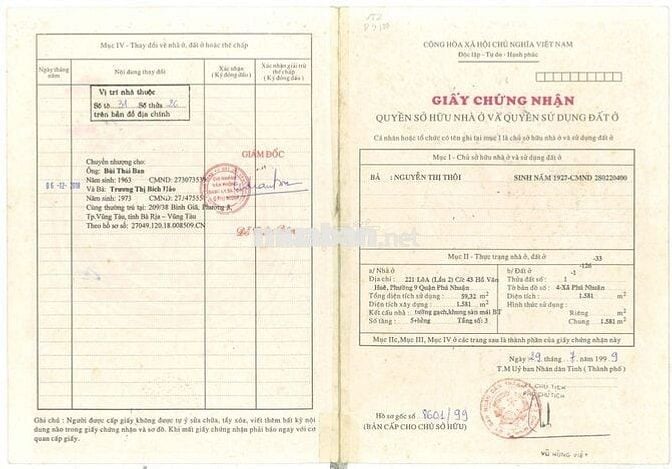 Mục IV - Thay đổi về nhà ở, đất ở hoặc thế chấp
Ngày tháng năm
Nội dung thay đổi
Xác nhận (Ký đóng dấu)
Xác nhận giải trừ thế chấp (Ký đóng dấu)
Vị trí nhà thuộc
Số tờ 31 Số thửa 20
trên bản đồ địa chính
Chuyển nhượng cho: GIÁM ĐỐC
Ông: Bùi Thái Ban
Năm sinh: 1963 CMND:
06-12-2018 Và Bà: Trương Thị Bích
Năm sinh: 1973 CMND:
Cùng thường trú tại: 209/38 Bình Giã, Phường 8,
Tp.Vũng Tàu, tỉnh Bà Rịa – Vũng Tàu
Theo hồ sơ số: 27049.120.18.008509.CN
Ghi chú : Người được cấp giấy không được tự ý sửa chữa, tẩy xóa, viết thêm bất kỳ nội
dung nào trong giấy chứng nhận và sơ đồ. Khi mất giấy chứng nhận phải báo ngay với cơ
quan cấp giấy.
muaban.net
CỘNG HÒA XÃ HỘI CHỦ NGHĨA VIỆT NAM
Độc lập - Tự do - Hạnh phúc
GIẤY CHỨNG NHẬN
QUYỀN SỞ HỮU NHÀ Ở VÀ QUYỀN SỬ DỤNG ĐẤT Ở
Cá nhân hoặc tổ chức có tên ghi tại mục I là chủ sở hữu nhà ở và sử dụng đất ở
Mục I - Chủ sở hữu nhà ở và sử dụng đất ở
BÀ : NGUYỄN THỊ THÔI SINH NĂM 1927-CMND 280220400
Mục II - Thực trạng nhà ở, đất ở -33
a/ Nhà ở b/ Đất ở -126
Địa chỉ : 221 LôA (Lầu 2) C/c 43 Hồ Văn Thửa đất số : -1
Huê, Phường 9 Quận Phú Nhuận Tờ bản đồ số : 4-Xã Phú Nhuận
Tổng diện tích sử dụng : 59,32 m2 Diện tích : 1.581 m2
Diện tích xây dựng : 1.581 m2 Hình thức sử dụng:
Kết cấu nhà : tường gạch,khung sàn mái BT Riêng m2
Số tầng : 5+lửng Tầng số: 3 Chung : 1.581 m2
Mục IIc, Mục III, Mục IV ở các trang sau là thành phần của giấy chứng nhận này
Ngày 29 tháng 7 năm 1999
T.M Uỷ ban Nhân dân Tỉnh ( Thành phố )
CHỦ TỊCH
PHÓ CHỦ TỊCH
Hồ sơ gốc số 8601/99
(BẢN CẤP CHO CHỦ SỞ HỮU)
VŨ HÙNG VIỆT